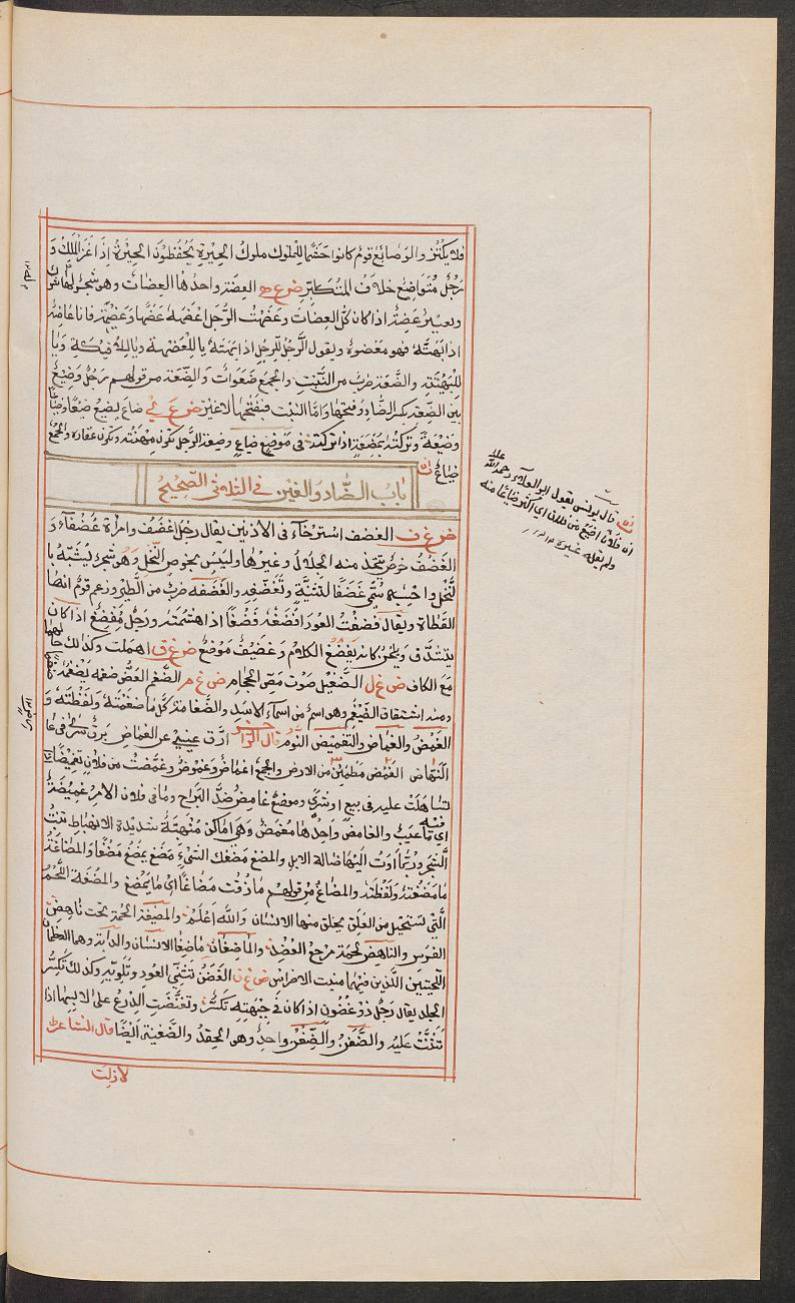 فلا يكثر والوضائع قوم كانوا حشما للملوك ملوك الحيرة يحفظون الحيرة اذا غزا الملك و
رجل متواضع خلاف المتكبر ض ع ه العضة واحدها العضات وهو شجر لها شوك
وبعير عضه اذا كان كل العضات وعضهت الرجل اعضهه عضها وعضيهة فانا عاضه
اذا بهته فهو معضوه ويقول الرجل للرجل اذا بهته يا للعضيهة ويا للافيكة ويا
للبهيتة والضعة ضرب من النبت والجمع ضعوات والضعة من قولهم رجل وضيع
بين الضعة بكسر الضاد وفتحها واما النبت فبفتحها لا غير ض ع ى ضاع يضيع ضيعا وضياعا
وضيعة وتركته بمضيعة اذا تركته في موضع ضياع وضيعة الرجل تكون مهنته وتكون عقاره والجمع
ضياع
باب الضاد والغين في الثلاثي الصحيح
ض غ ف الغضف استرخاء في الاذنين يقال رجل اغضف وامراة غضفاء و
الغضف خوص تتخذ منه الجلال وغيرها وليس بخوص النخل وهو شجر يشبه با
لنخل واحسبه سمي غضفا لتثنيه وتغضفه والغضفة ضرب من الطير وزعم قوم انها
القطاة ويقال فضغت العود افضغه فضغا اذا هشمته ورجل مفضغ اذا كان
يتشدق ويلحن كانه يفضغ الكلام وغضيف موضع ض غ ق اهملت وكذلك حالهما
مع الكاف ض غ ل الضغيل صوت مص الحجام ض غ م الضغم العض ضغمه يضغمه
ومنه اشتقاق الضيغم وهو اسم من اسماء الاسد والضغامة كل ما ضغمته ولفظته و
الغمض والغماض والتغميض النوم قال الراجز ارق عيني عن الغماض برق سرى في عا
النهاض الغمض مطمئن من الارض والجمع اغماض وغموض وغمضت من فلان تغميضا اذا
تساهلت عليه في بيع او شرى وموضع غامض ضد البراح وما في فلان الامر غميضة
اي ما عيب والغامض واحدها مغمض وهي اماكن منهبطة شديدة الانهباط تنبت فيه
الشجر وربما اوت اليها ضالة الابل والمضغ مضغك الشيء مضغ يمضغ مضغا والمضاغة
ما مضغته ولفظته والمضاغ من قولهم ما ذقت مضاغا اي ما يمضغ والمضغة اللحم
التي تستحيل من العلق يخلق منها الانسان والله اعلم والمضيغة لحمة تحت ناهض
الفرس والناهض لحمة مرجع العضد والماضغان ماضغا الانسان والدابة وهما العظمان
اللحيين اللذين فيهما منبت الاضراس ض غ ن الغضن تثني العود وتلويه وكذلك تكسر
الجلد يقال رجل ذو غضون اذا كان في جبهته تكسر وتغضنت الدرع على لابسها اذا
تثنت عليه والضغن والضغن واحد وهو الحقد والضغينة ايضا قال الشاعر
لا زلت
قال يونس يقول ابو العلاء رحمه الله عليه
ان فلانا اضيع من فلان اي اكثر ضياعا منه
ولم يقله غيره